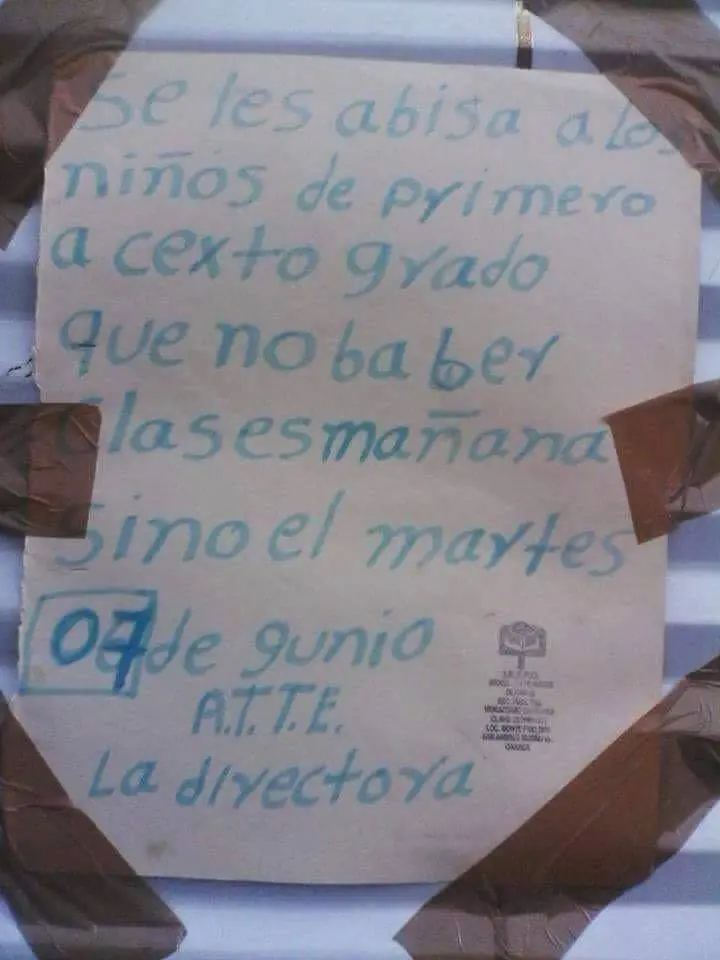 Se les abisa a los
niños de primero
a cexto grado
que no ba ber
Clases mañana
Sino el martes
07 de gunio
A.T.T.E.
La directora
OAXACA